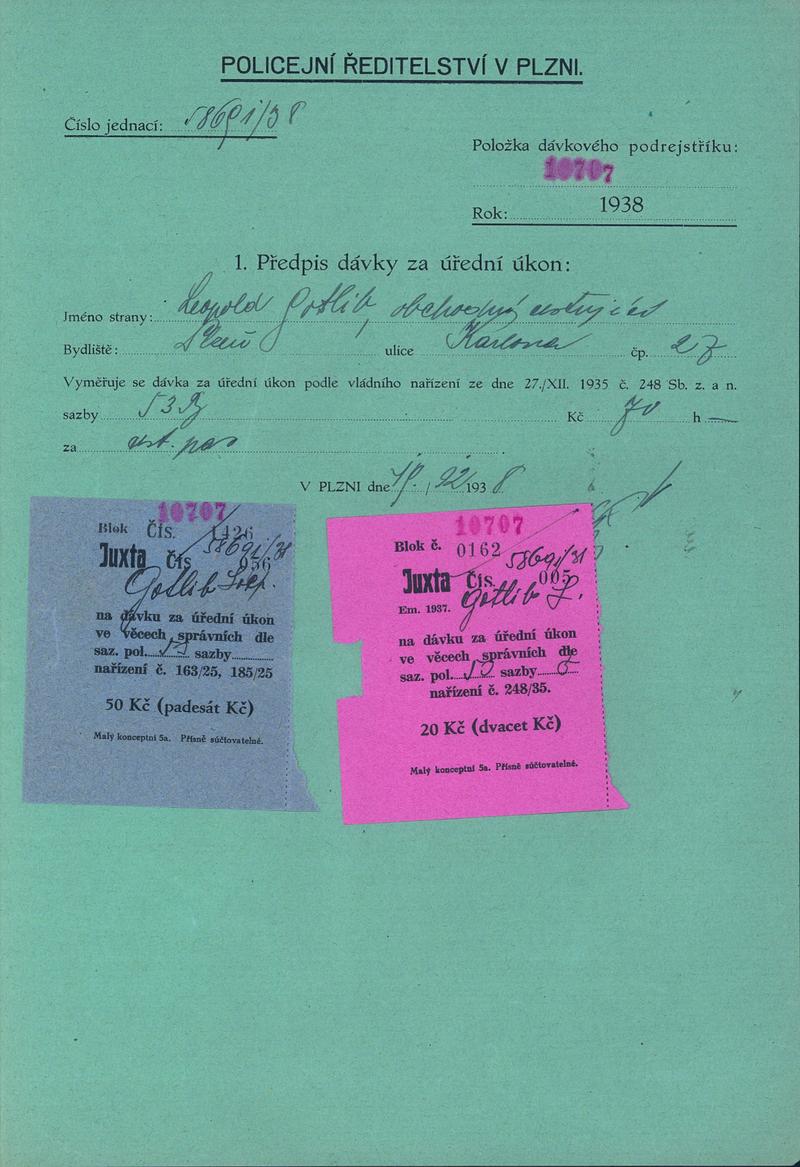 POLICEJNÍ ŘEDITELSTVÍ V PLZNI.
Číslo jednací: 58691/38
Položka dávkového podrejstříku:
10707
Rok: 1938
1. Předpis dávky za úřední úkon:
Jméno strany: Leopold Gotlib, obchodný
Bydliště: Plzeň ulice Karlova čp. 27
Vyměřuje se dávka za úřední úkon podle vládního nařízení ze dne 27./XII. 1935 č. 248 Sb. z. a n.
sazby 53 Kč 70 h —
za cest. pas
V PLZNI dne 19/12 1938
10707
Blok Čís. 1426
58691/38
Juxta Čís 056
Gotlib Leop.
na dávku za úřední úkon
ve věcech správních dle
saz. pol. sazby
nařízení č. 163/25, 185/25
50 Kč (padesát Kč)
Malý konceptní 5a. Přísně súčtovatelné.
10707
Blok č. 0162
58691/38
Juxta Čís. 005
Em. 1937. Gotlib L.
na dávku za úřední úkon
ve věcech správních dle
saz. pol. sazby
nařízení č. 248/35.
20 Kč (dvacet Kč)
Malý konceptní 5a. Přísně súčtovatelné.